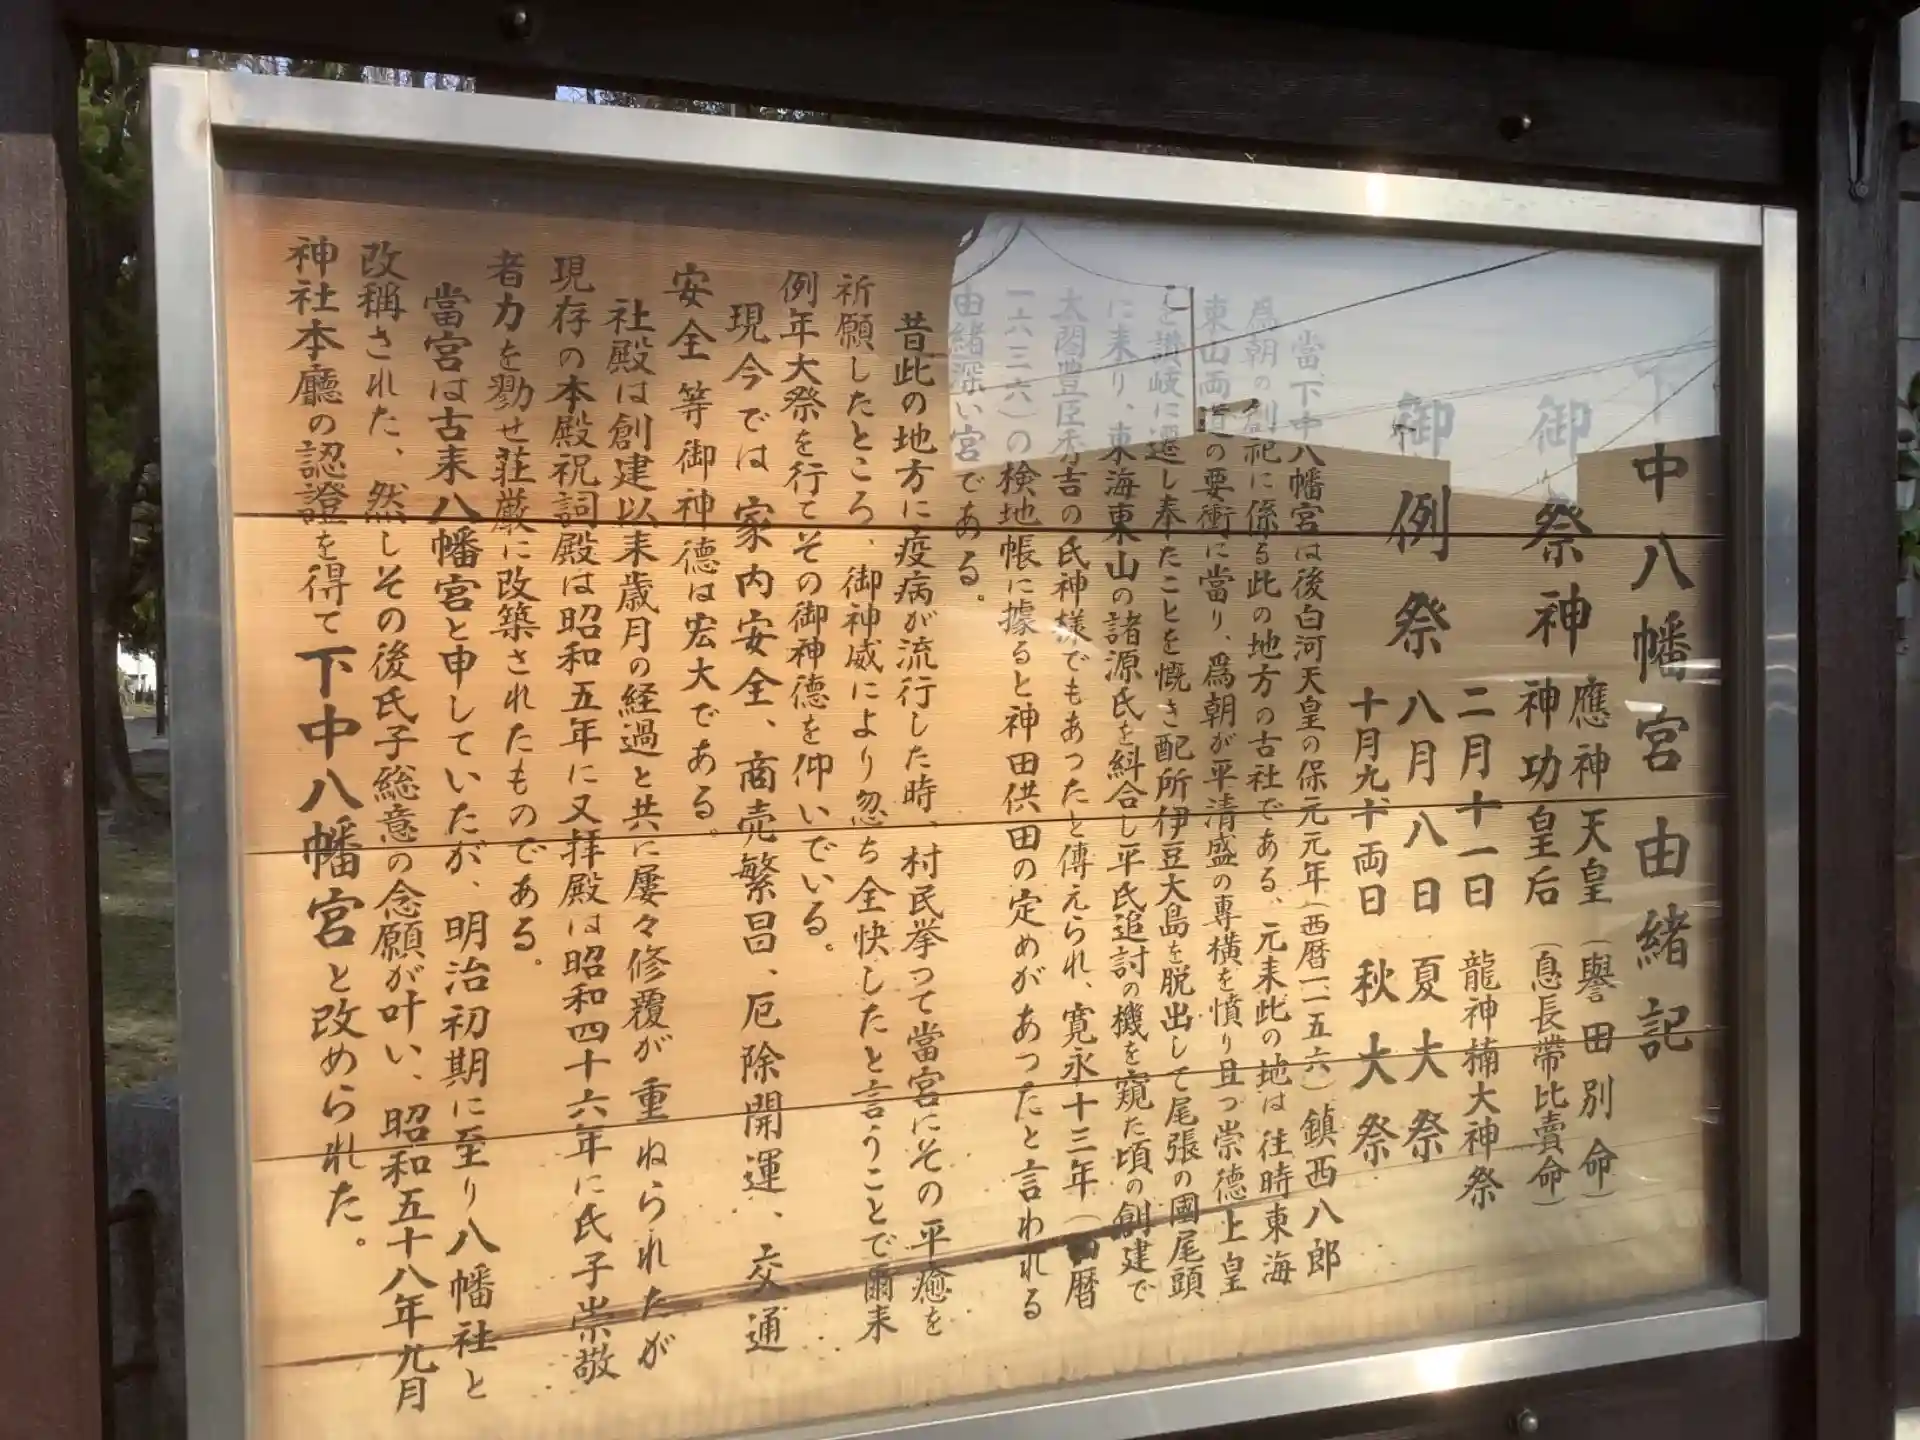 下中八幡宮由緒記
御祭神 應神天皇(譽田別命)
神功皇后(息長帶比賣命)
御例祭 二月十一日 龍神楠大神祭
八月八日 夏大祭
十月九、十両日 秋大祭
當、下中八幡宮は後白河天皇の保元元年(西暦一、一五六)鎮西八郎
爲朝の創祀に係る此の地方の古社である、元来此の地は往時東海
東山両道の要衝に當り、爲朝が平清盛の専横を憤り且つ崇徳上皇
を讃岐に遷し奉たことを慨き配所伊豆大島を脱出して尾張の國尾頭
に来り、東海東山の諸源氏を糾合し平氏追討の機を窺た頃の創建で
太閤豊臣秀吉の氏神様でもあったと傳えられ、寛永十三年(西暦
一六三六)の検地帳に據ると神田供田の定めがあったと言われる
由緒深い宮である。
昔此の地方に疫病が流行した時、村民挙って當宮にその平癒を
祈願したところ、御神威により忽ち全快したと言うことで爾来
例年大祭を行てその御神徳を仰いでいる。
現今では家内安全、商売繁昌、厄除開運、交通
安全等御神徳は宏大である。
社殿は創建以来歳月の経過と共に屡々修覆が重ねられたが
現存の本殿祝詞殿は昭和五年に又拝殿は昭和四十六年に氏子崇敬
者力を勠せ荘厳に改築されたものである。
當宮は古来八幡宮と申していたが、明治初期に至り八幡社と
改稱された、然しその後氏子総意の念願が叶い、昭和五十八年九月
神社本廳の認證を得て下中八幡宮と改められた。